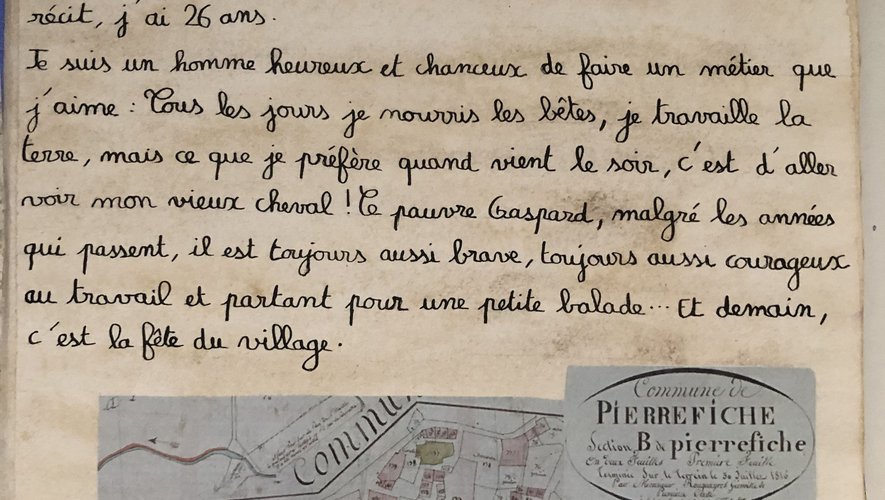 récit, j'ai 26 ans.
Je suis un homme heureux et chanceux de faire un métier que
j'aime : Tous les jours je nourris les bêtes, je travaille la
terre, mais ce que je préfère quand vient le soir, c'est d'aller
voir mon vieux cheval ! Ce pauvre Gaspard, malgré les années
qui passent, il est toujours aussi brave, toujours aussi courageux
au travail et partant pour une petite balade... Et demain,
c'est la fête du village.
Commun
Commune de
PIERREFICHE
Section B de pierrefiche
En deux feuilles Première feuille
Terminée Sur le terrein le 30 Juillet 1816
Par